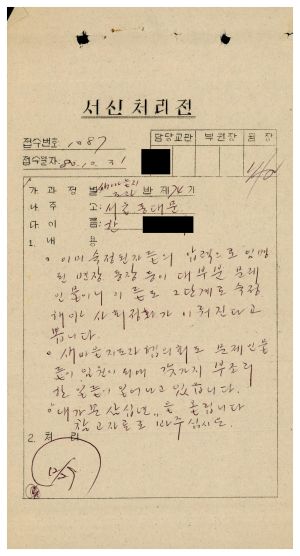 서신처리전
접수번호: 1087
접수일자: 80. 10. 31
담당교관 부원장 원장
가 과정별 새마을지도자 반 제74기
나 주 소: 서울 동대문
다 이 름: 한
1. 내 용
이미 숙정된 자들의 압력으로 임명
된 반장 통장 등이 대부분 문제
인물이니 이들도 2단계로 숙정
해야 사회정화가 이뤄진다고
봅니다.
새마을지도자협의회도 문제인물
들이 임원이 되어 갖가지 부조리
한 일들이 일어나고 있읍니다.
를 올립니다
참고자료로 하여 주십시요.
2. 처 리